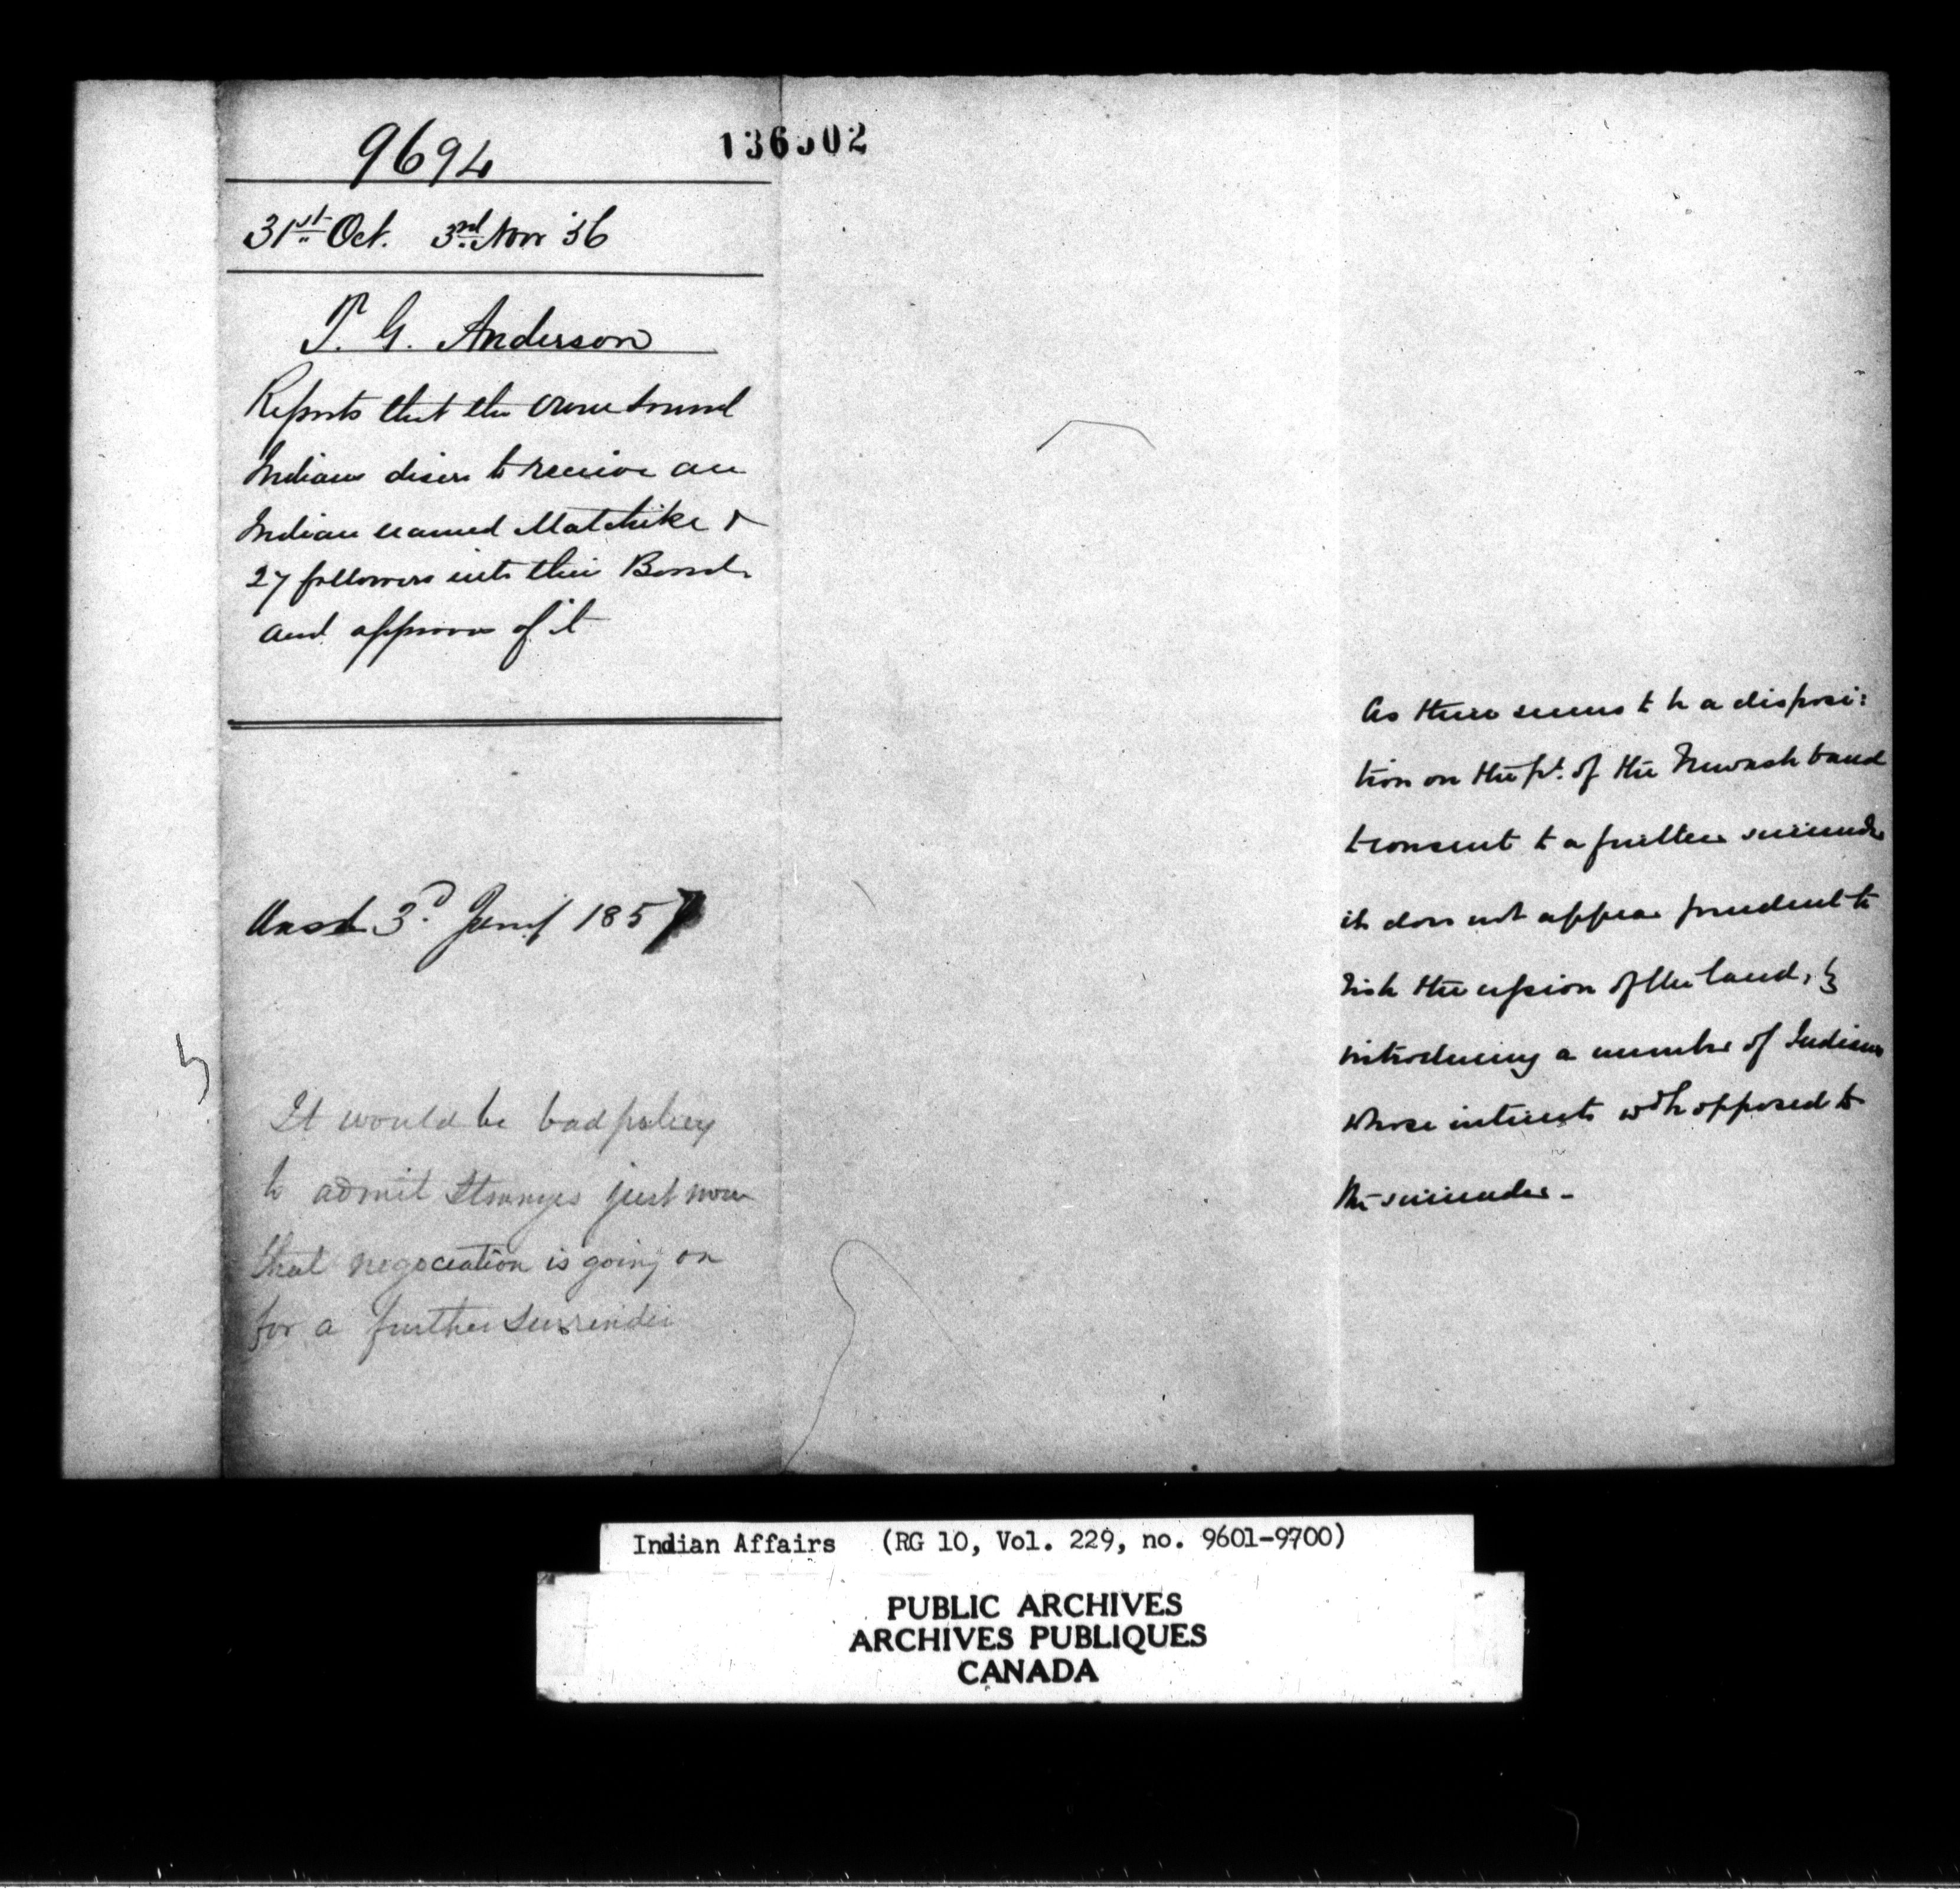 9694
136502
31st Oct. 3rd Nov '56
T. G. Anderson
Reports that the Owen Sound
Indians desire to receive an
Indian named Matchike &
27 followers into their Band
and approves of it
Ansd 3d Jany 1857
It would be bad policy
to admit Strangers just now
that negociation is going on
for a further Surrender
As there seems to be a disposi:
tion on the pt. of the Newash band
to consent to a further surrender
it does not appear prudent to
risk the cession of the land, by
introducing a number of Indians
whose interests wd be opposed to
the surrender -
Indian Affairs (RG 10, Vol. 229, no. 9601-9700)
PUBLIC ARCHIVES
ARCHIVES PUBLIQUES
CANADA